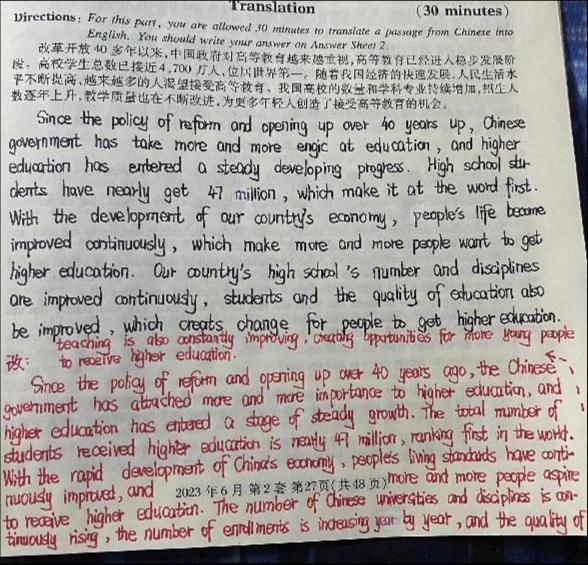 Translation (30 minutes)
Directions: For this part, you are allowed 30 minutes to translate a passage from Chinese into
English. You should write your answer on Answer Sheet 2.
改革开放40多年以来,中国政府对高等教育越来越重视,高等教育已经进入稳步发展阶
段,高校学生总数已接近4,700万人,位居世界第一。随着我国经济的快速发展,人民生活水
平不断提高,越来越多的人渴望接受高等教育。我国高校的数量和学科专业持续增加,招生人
数逐年上升,教学质量也在不断改进,为更多年轻人创造了接受高等教育的机会。
Since the policy of reform and opening up over 40 years up, Chinese
government has take more and more engic at education, and higher
education has entered a steady developing progress. High school stu-
dents have nearly get 47 million, which make it at the word first.
With the development of our country's economy, people's life become
improved continuously, which make more and more people want to get
higher education. Our country's high school 's number and disciplines
are improved continuously, students and the quality of education also
be improved, which creats change for people to get higher education.
teaching is also constantly improving, creating opptunities for more young people
改: to receive higher education.
Since the policy of reform and opening up over 40 years ago, the Chinese
government has attached more and more importance to higher education, and
higher education has entered a stage of steady growth. The total number of
students received higher education is nearly 47 million, ranking first in the world.
With the rapid development of China's economy, people's living standards have conti-
nuously improved, and 2023年6月第2套 第27页(共48页) more and more people aspire
to receive higher education. The number of Chinese universities and disciplines is con-
tinuously rising, the number of enrollments is increasing year by year, and the quality of